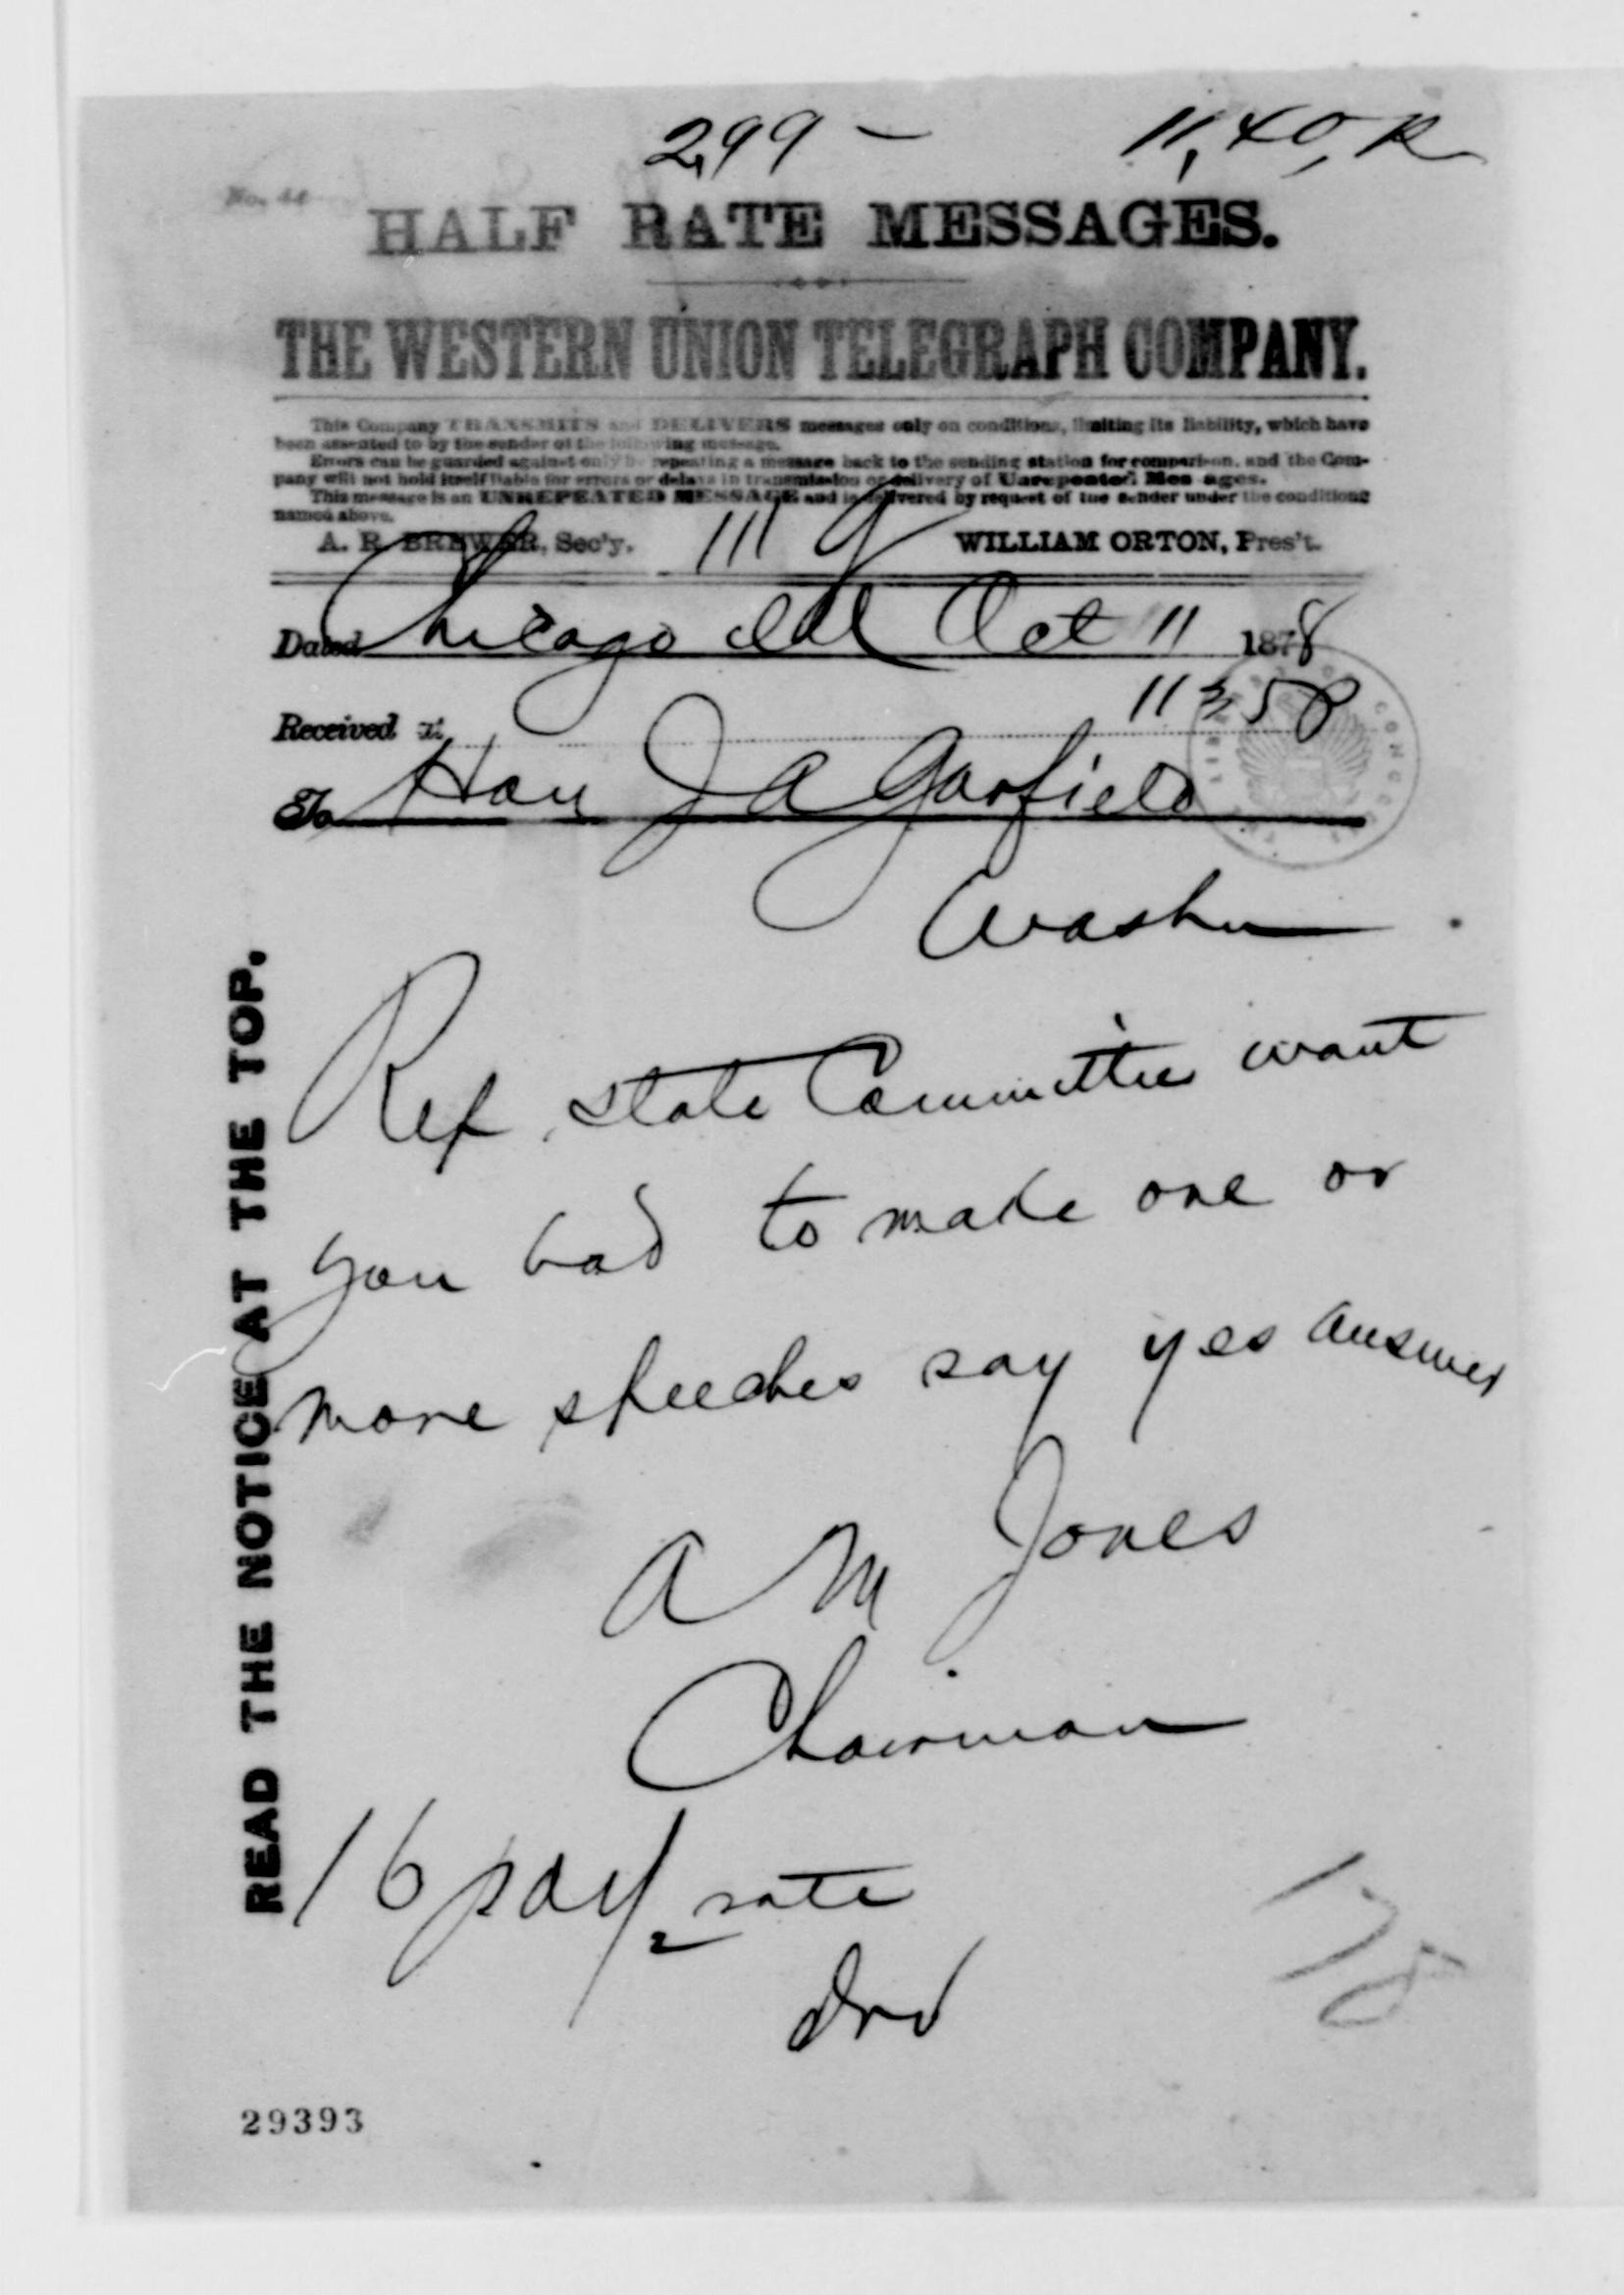 299 — 11,40, P
No. 44
HALF RATE MESSAGES.
THE WESTERN UNION TELEGRAPH COMPANY.
This Company TRANSMITS and DELIVERS messages only on conditions, limiting its liability, which have
been assented to by the sender of the following message.
Errors can be guarded against only by repeating a message back to the sending station for comparison, and the Com-
pany will not hold itself liable for errors or delays in transmission or delivery of Unrepeated Messages.
This message is an UNREPEATED MESSAGE and is delivered by request of the sender under the conditions
named above.
A. R. BREWER, Sec'y. 111 WILLIAM ORTON, Pres't.
Dated Chicago Ill Oct 11 1878
Received at
To Hon J A Garfield
Washn
Rep state Committee want
you bad to make one or
more speeches say yes answer
A M Jones
Chairman
16 pay ½ rate
178
29393
READ THE NOTICE AT THE TOP.